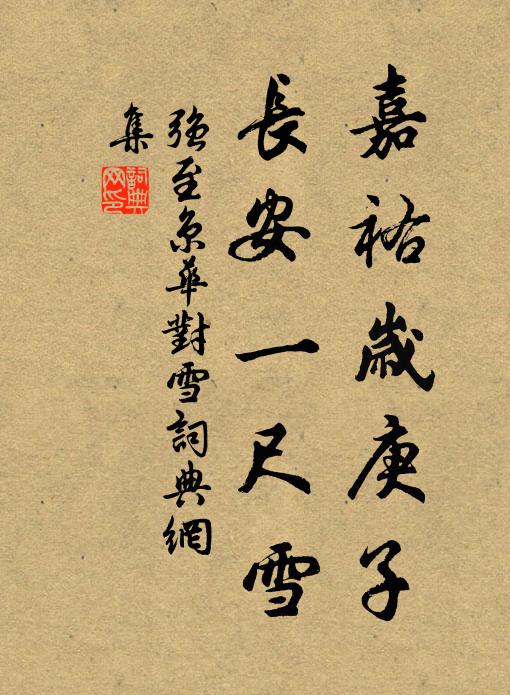 嘉祐歲庚子
長安一尺雪
強至京華對雪詞典網
集
詞典網印